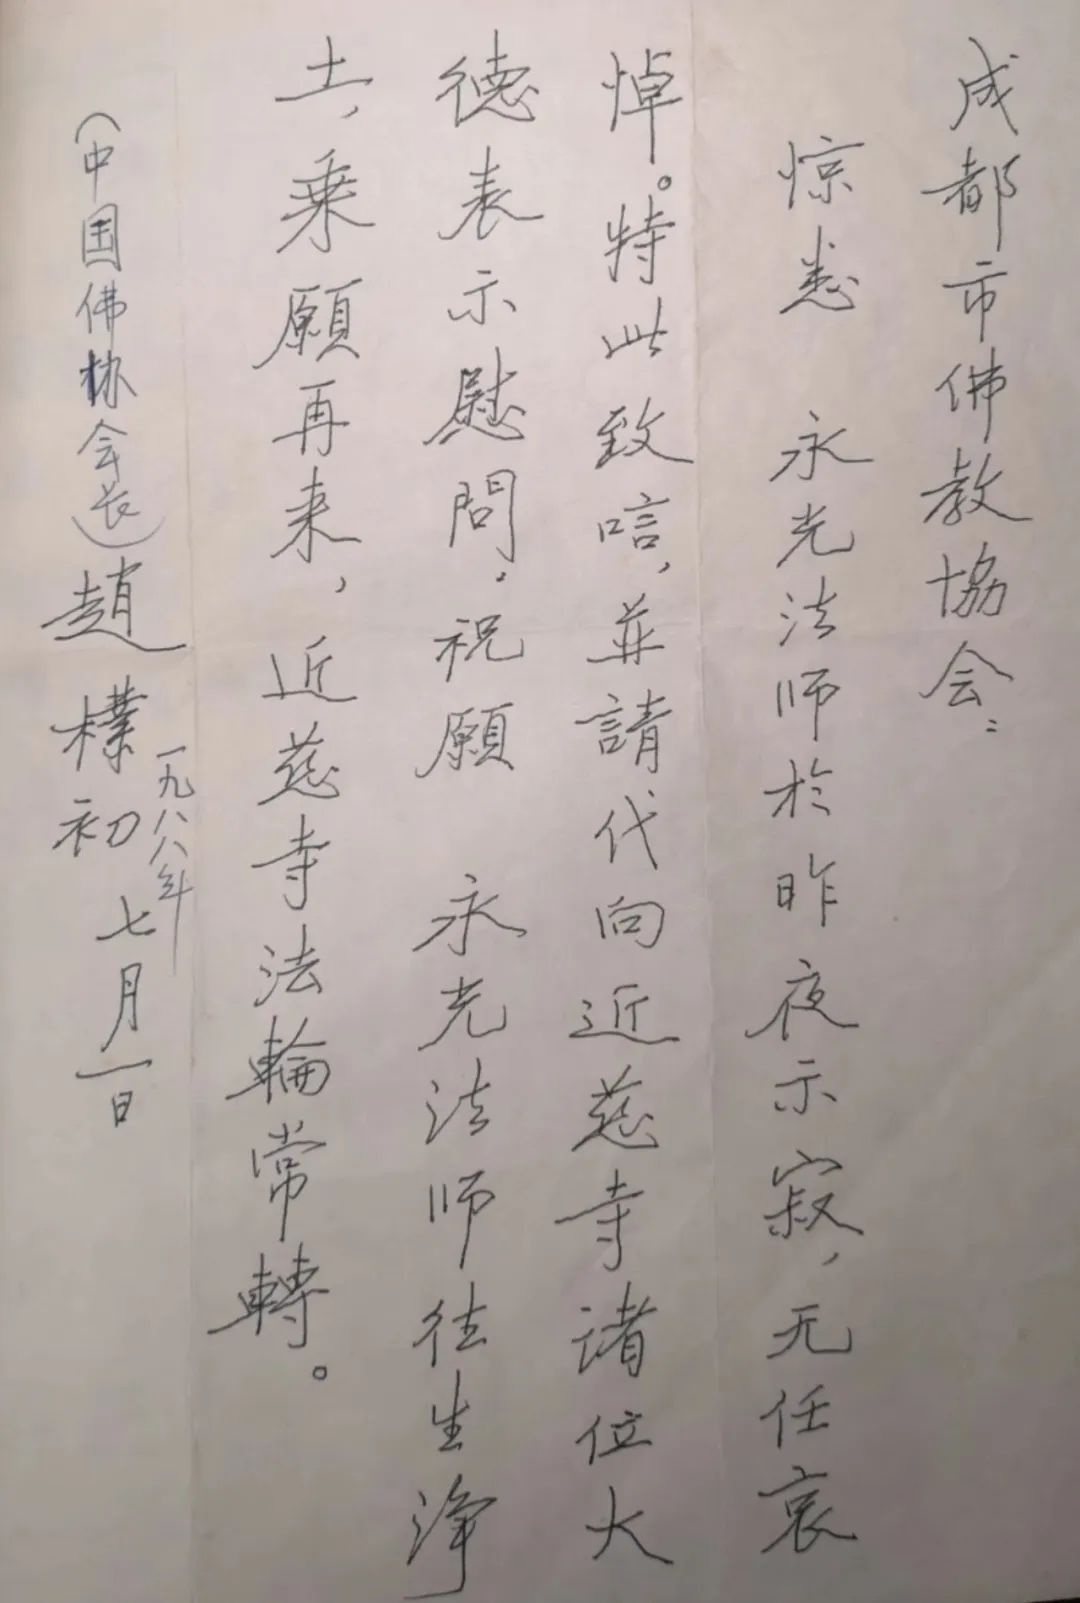 成都市佛教協会：
惊悉　永光法师於昨夜示寂，无任哀
悼。特此致唁，並請代向近慈寺诸位大
德表示慰問。祝願　永光法师往生淨
土，乗願再来，近慈寺法輪常轉。
（中国佛协会长）趙樸初
一九八八年
七月一日